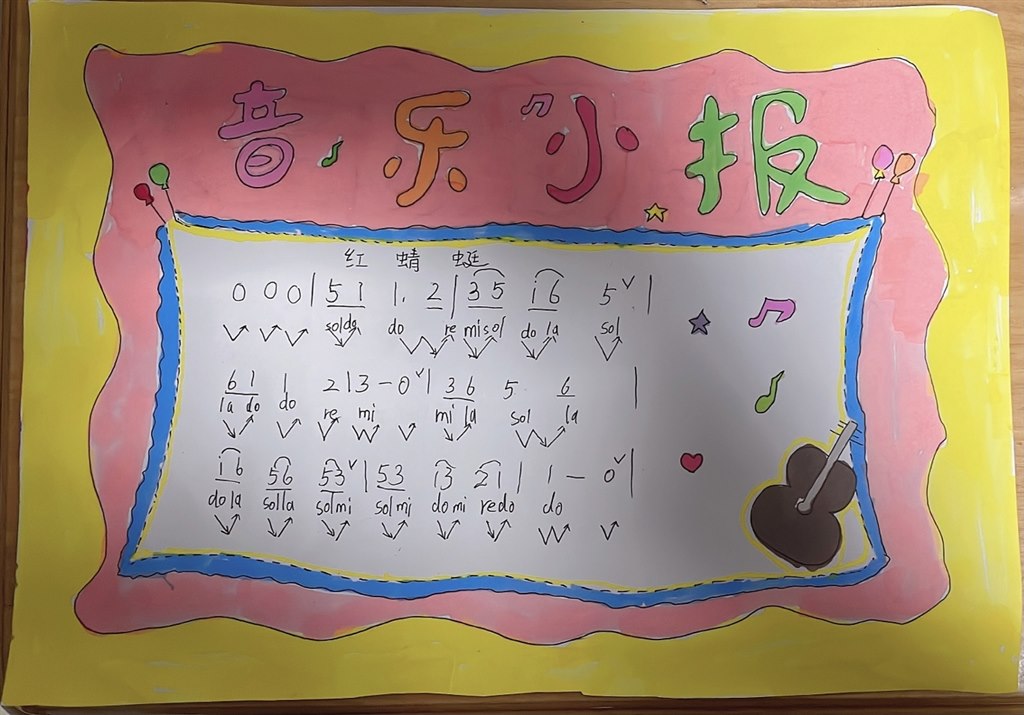 音乐小报
红 蜻 蜓
0 0 0 | 5 1 1. 2 | 3 5 i 6 5 ∨ |
sol do do re mi sol do la sol
6 1 1 2 | 3 - 0 ∨ | 3 6 5 6 |
la do do re mi mi la sol la
i 6 5 6 5 3 ∨ | 5 3 1 3 2 1 | 1 - 0 ∨ |
do la sol la sol mi sol mi do mi re do do